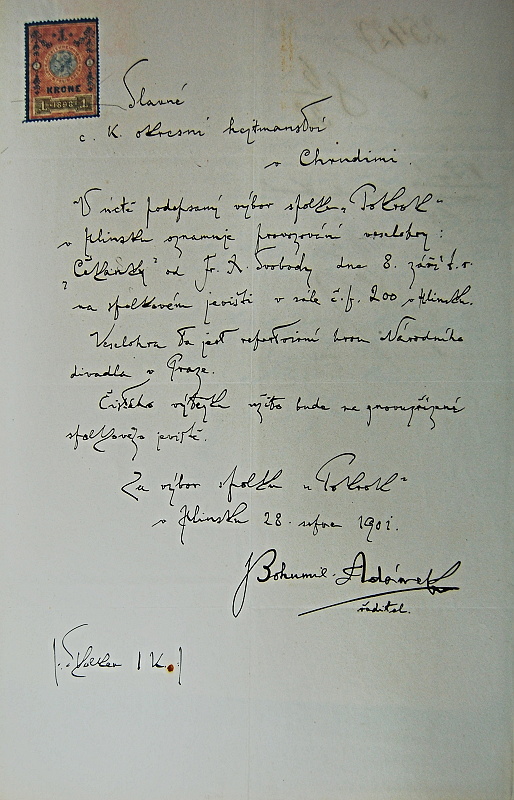 1 KRONE 1
1898
Slavné
c. k. okresní hejtmanství
v Chrudimi.
V úctě podepsaný výbor spolku „Pokrok“
v Hlinsku oznamuje provozování veselohry:
„Čekanky“ od Fr. X. Svobody dne 8. září t. r.
na spolkovém jevišti v sále č. p. 200 v Hlinsku.
Veselohra ta jest repertoirní hrou Národního
divadla v Praze.
Čistého výtěžku užito bude na
spolkového jeviště.
Za výbor spolku „Pokrok“
v Hlinsku 28. srpna 1901.
Bohumil Adámek
ředitel.
Kolek 1 K.